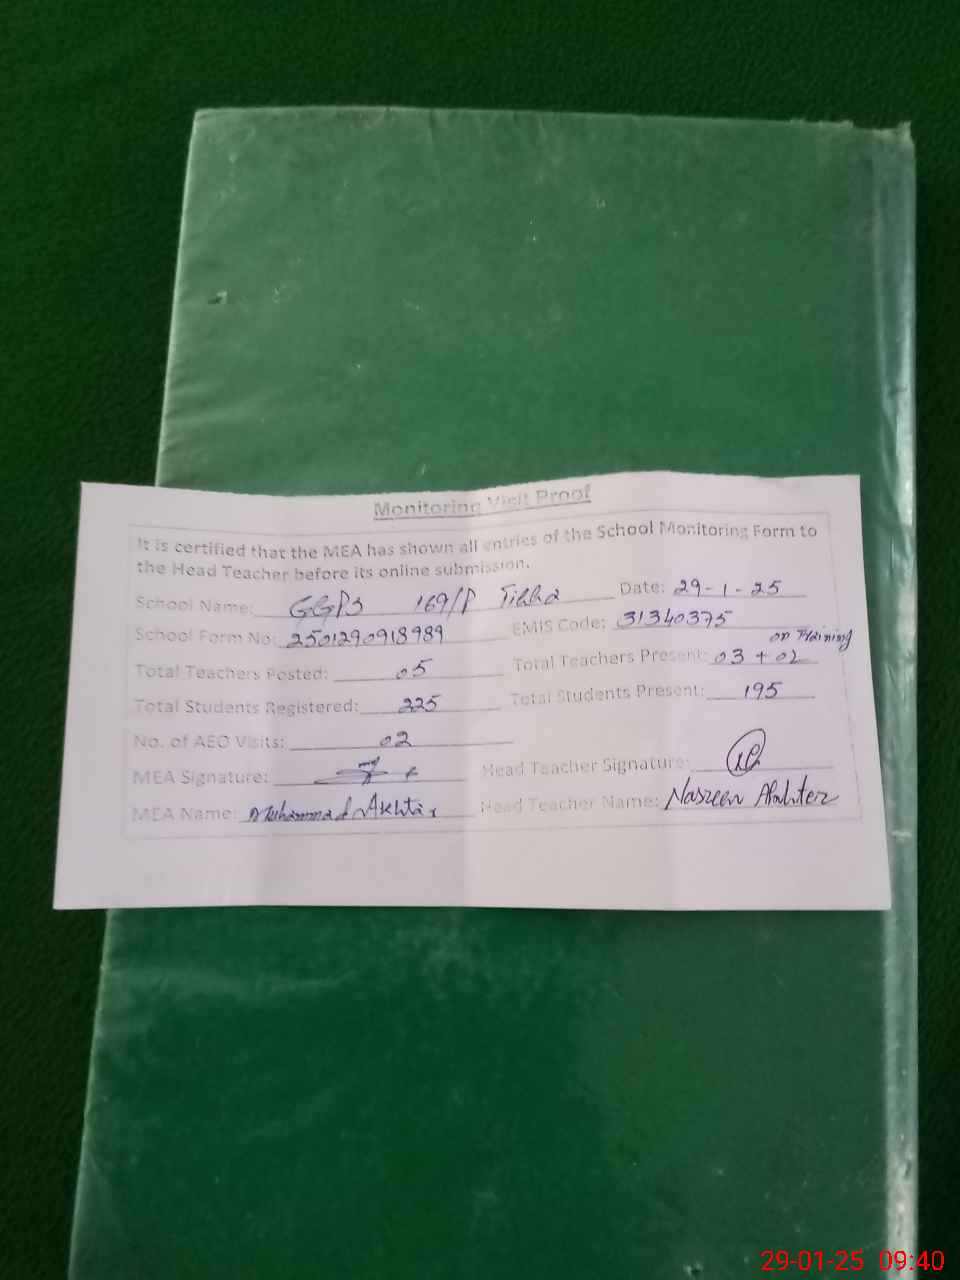 Monitoring Visit Proof
It is certified that the MEA has shown all entries of the School Monitoring Form to
the Head Teacher before its online submission.
School Name: GGPS 169/P Tibba Date: 29-1-25
School Form No: 2501290918989 EMIS Code: 31340375
on Training
Total Teachers Posted: 05 Total Teachers Present: 03 + 02
Total Students Registered: 225 Total Students Present: 195
No. of AEO Visits: 02
MEA Signature: Head Teacher Signature:
MEA Name: Muhammad Akhtar Head Teacher Name: Nasreen Akhter
29-01-25 09:40